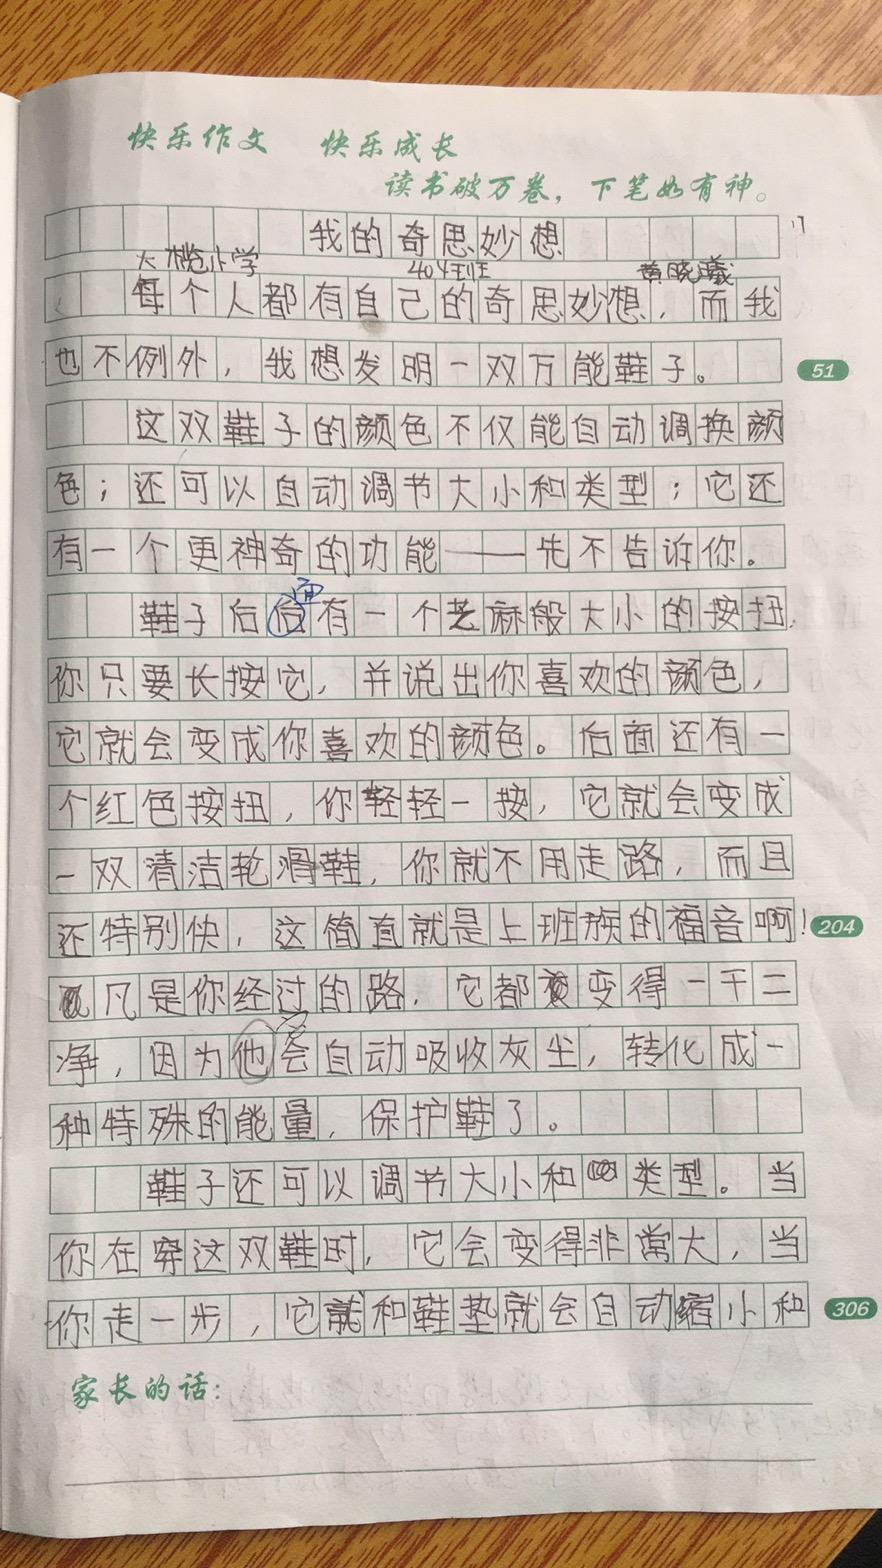 快乐作文 快乐成长
读书破万卷，下笔如有神。
我的奇思妙想
大榄小学 404班 黄晓曦
每个人都有自己的奇思妙想，而我
也不例外，我想发明一双万能鞋子。
51
这双鞋子的颜色不仅能自动调换颜
色；还可以自动调节大小和类型；它还
有一个更神奇的功能——先不告诉你。
鞋子后面有一个芝麻般大小的按扭，
你只要长按它，并说出你喜欢的颜色，
它就会变成你喜欢的颜色。后面还有一
个红色按扭，你轻轻一按，它就会变成
一双清洁轮滑鞋，你就不用走路，而且
还特别快，这简直就是上班族的福音啊！
204
凡是你经过的路，它都变得一干二
净，因为他会自动吸收灰尘，转化成一
种特殊的能量，保护鞋了。
鞋子还可以调节大小和类型。当
你在穿这双鞋时，它会变得非常大，当
你走一步，它就和鞋垫就会自动缩小和
306
家长的话：